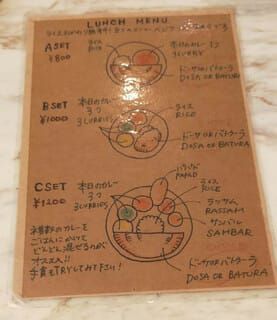 LUNCH MENU
A SET
¥800
ライス
RICE
本日のカレー1つ
1 CURRY
ドーサ OR バトゥーラ
DOSA OR BATURA
B SET
¥1000
本日のカレー
3つ
3 CURRIES
ライス
RICE
ドーサ OR バトゥーラ
DOSA OR BATURA
C SET
¥1200
本日のカレー
3つ
3 CURRIES
パパド
PAPAD
ライス
RICE
ラッサム
RASSAM
サンバル
SAMBAR
ドーサ OR バトゥーラ
DOSA OR BATURA
複数のカレーを
ごはんにかけて
どんどん混ぜるのが
オススメ!!
手食もTRYしてみて下さい!